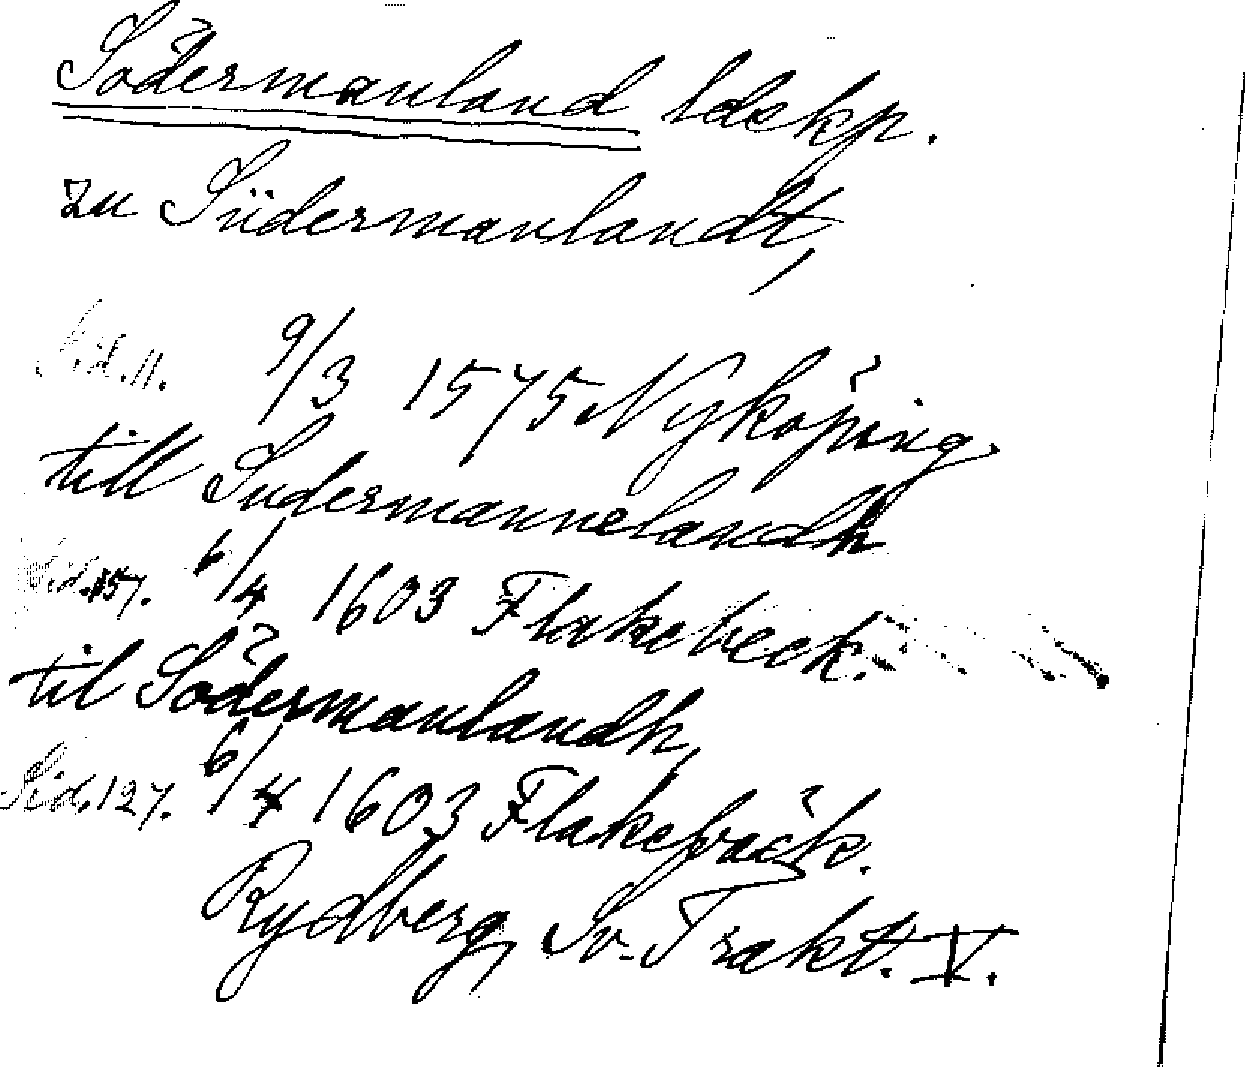 Södermanland ldskp.
zu Südermanlandt,
Sid. 11. 9/3 1575 Nyköping
till Sudermannelandh
Sid. 157. 6/4 1603 Flakebeck.
til Södermanlandh,
Sid. 127. 6/4 1603 Flakebäck.
Rydberg, Sv. Trakt. V.